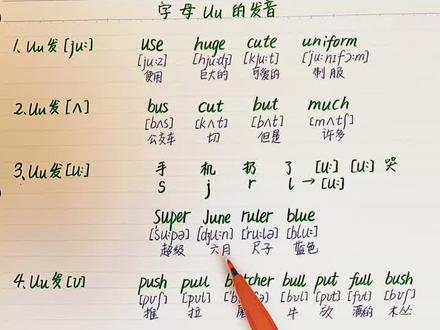 字母Uu的发音
1. Uu发[ju:] use huge cute uniform
[ju:z] [hju:dʒ] [kju:t] ['ju:nɪfɔ:m]
使用 巨大的 可爱的 制服
2. Uu发[ʌ] bus cut but much
[bʌs] [kʌt] [bʌt] [mʌtʃ]
公交车 切 但是 许多
3. Uu发[u:] 手 机 扔 了 [u:] [u:] 哭
s j r l → [u:]
super June ruler blue
['su:pə] [dʒu:n] ['ru:lə] [blu:]
超级 六月 尺子 蓝色
4. Uu发[ʊ] push pull bull put full bush
[pʊʃ] [pʊl] [bʊl] [pʊt] [fʊl] [bʊʃ]
推 拉 牛 放 满的